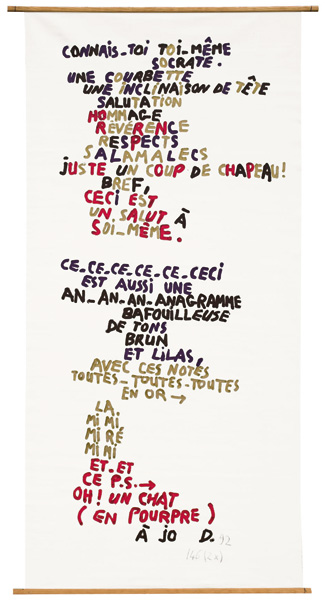 CONNAIS-TOI TOI-MÊME
SOCRATE.
UNE COURBETTE
UNE INCLINAISON DE TÊTE
SALUTATION
HOMMAGE
RÉVÉRENCE
RESPECTS
SALAMALECS
JUSTE UN COUP DE CHAPEAU!
BREF,
CECI EST
UN SALUT À
SOI-MÊME.
CE-CE-CE-CE-CE-CECI
EST AUSSI UNE
AN-AN-AN-ANAGRAMME
BAFOUILLEUSE
DE TONS
BRUN
ET LILAS,
AVEC CES NOTES
TOUTES-TOUTES-TOUTES
EN OR →
LA
MI MI
MI RÉ
MI MI
ET-ET
CE P.S. →
OH! UN CHAT
(EN POURPRE)
À JO D. 92